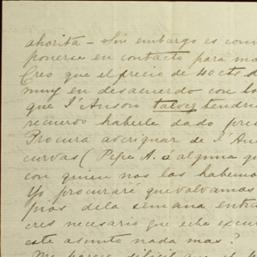 ahorita - Sin embargo es conv
ponerse en contacto para ma
Creo que el precio de 40 cts d
muy en desacuerdo con lo
que I'Anson talvez tendri
recuerdo haberle dado prec
Procura averiguar de I'An
curvas (Pepe A. o alguna
con quien nos las habemo
Yo procuraré que volvamos
pios de la semana entra
crees necesario que echa excur
este asunto nada mas?